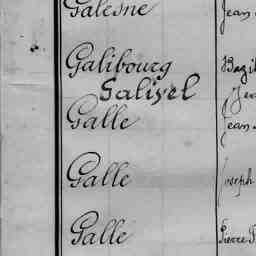 Galesne Jean
Galibourg Bazil
Galivel Jea
Galle Jean
Galle Joseph
Galle Pierre